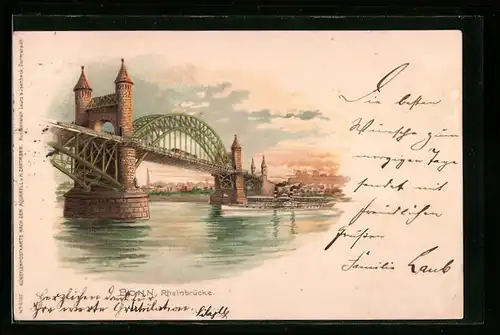 Die besten
Wünsche zum
morgigen Tage
sendet mit
freundlichen
Grüßen
Familie Laub
BONN, Rheinbrücke.
Herzlichen Dank für
Ihre werte Gratulation.
KÜNSTLERPOSTKARTE NACH DEM AQUARELL v. H. DARTMER